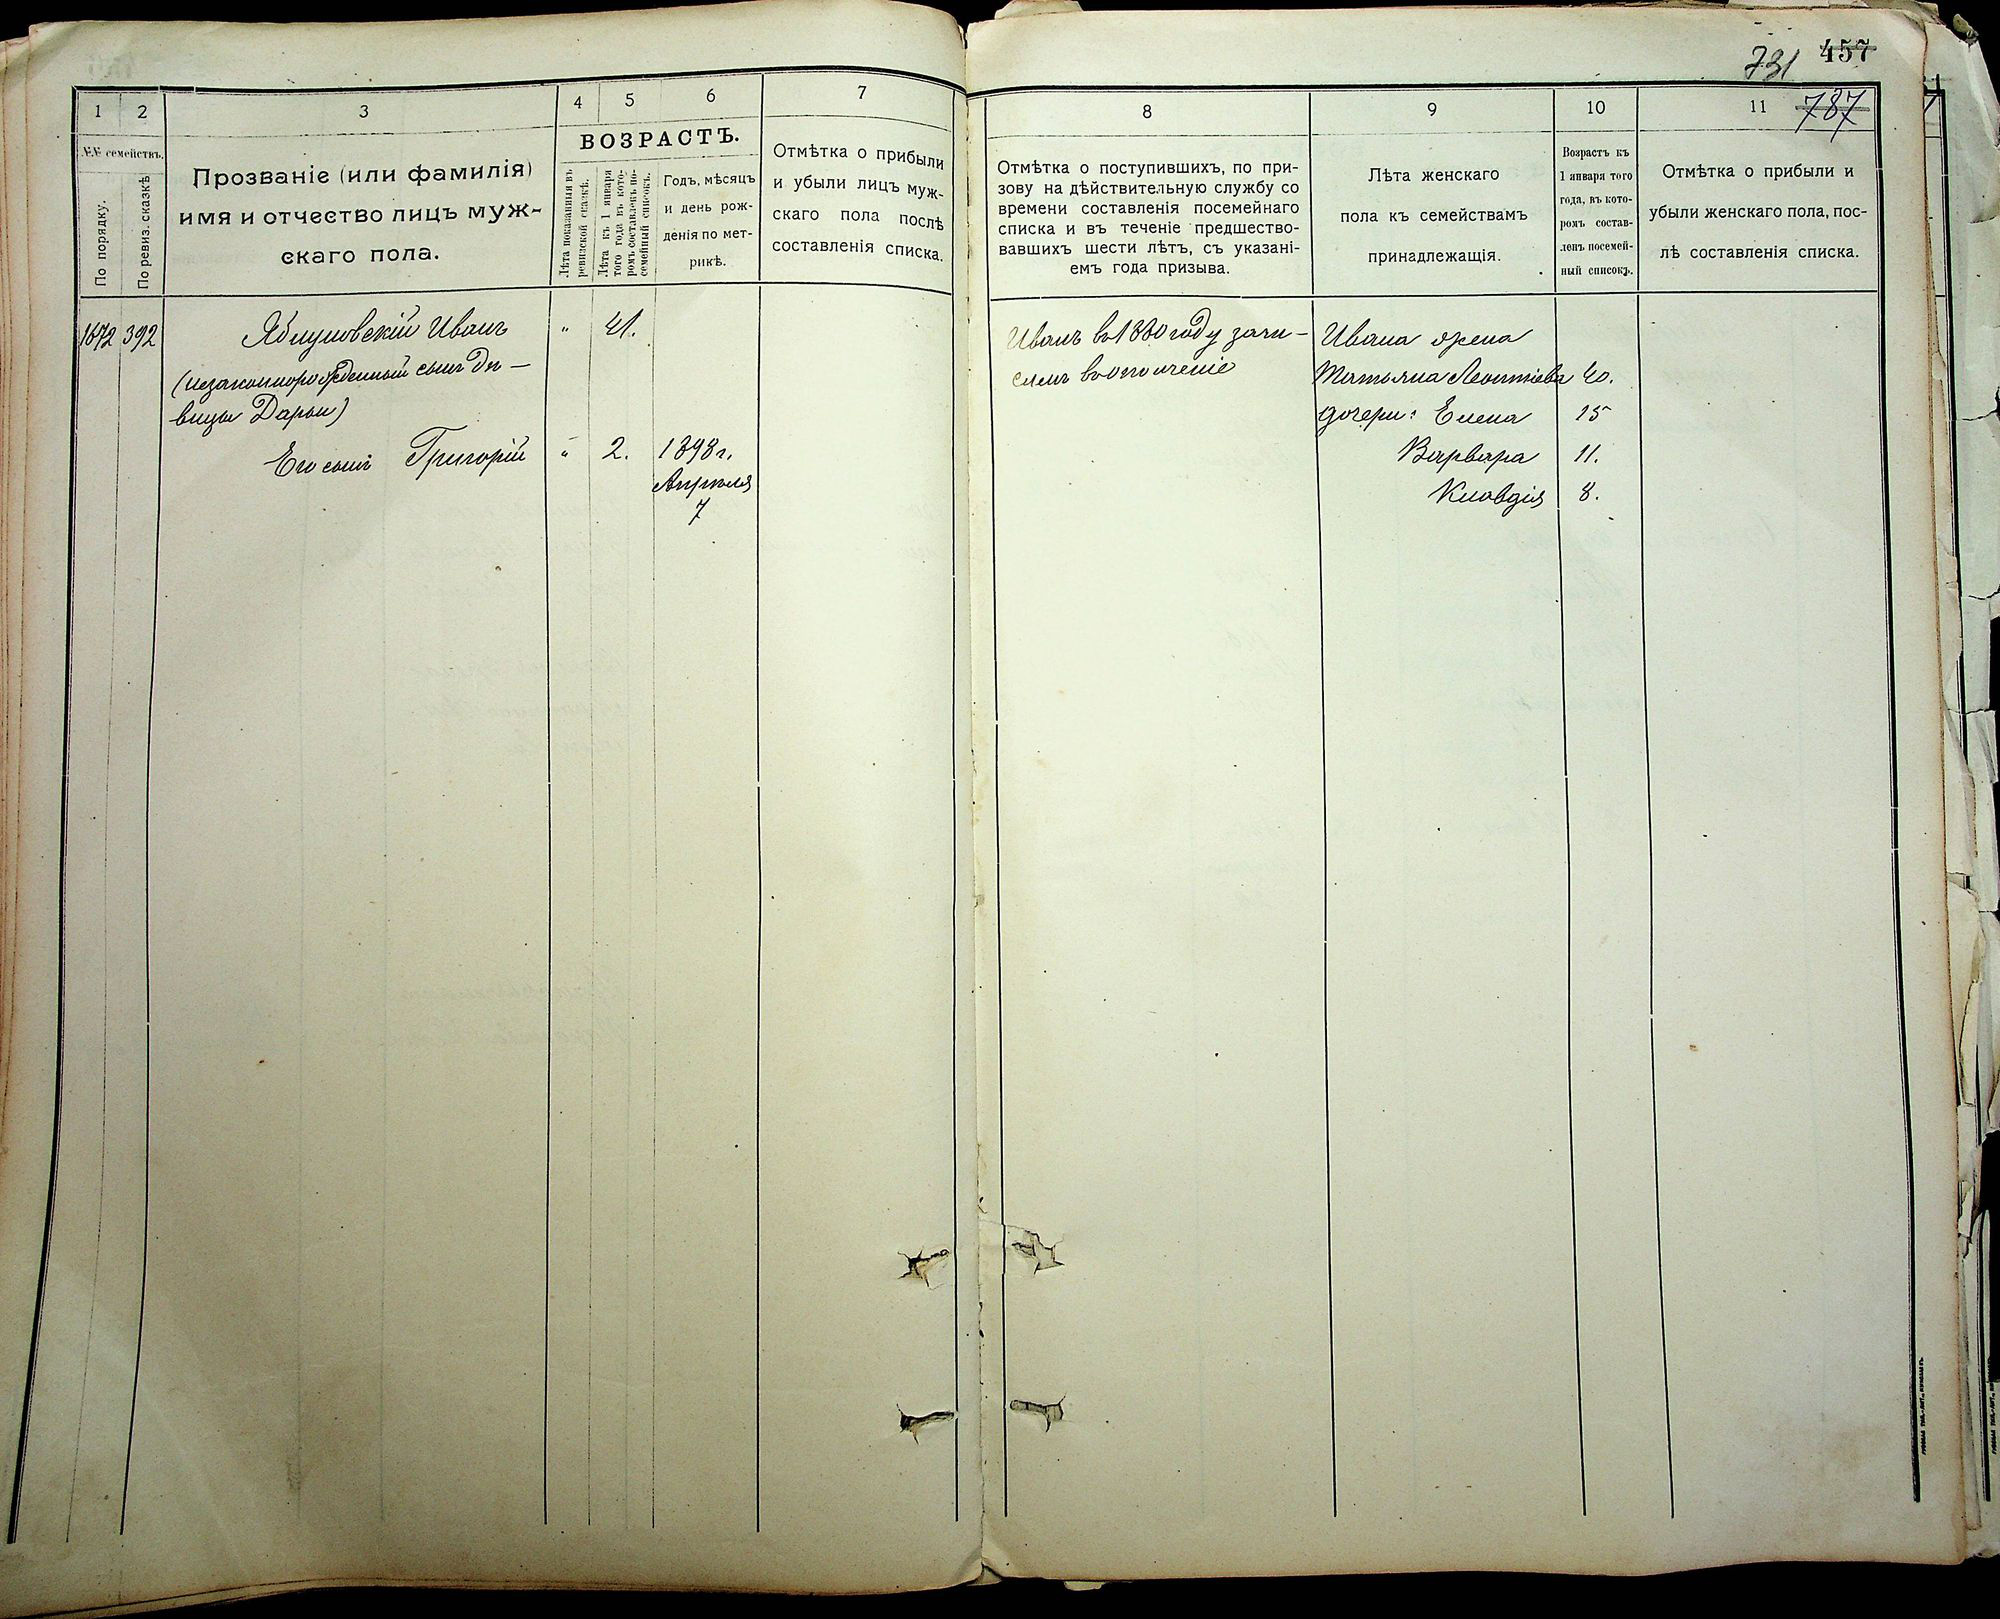 731 457
787
1 2 3 4 5 6 7
№№ семействъ.
По порядку.
По ревиз. сказкѣ
Прозваніе (или фамилія)
имя и отчество лицъ муж-
скаго пола.
ВОЗРАСТЪ.
Лѣта показанныя въ
ревизской сказкѣ.
Лѣта къ 1 января
того года въ кото-
ромъ составленъ по-
семейный списокъ.
Годъ, мѣсяцъ
и день рож-
денія по мет-
рикѣ.
Отмѣтка о прибыли
и убыли лицъ муж-
скаго пола послѣ
составленія списка.
1672 392 Яблуновскій Иванъ " 41.
(незаконнорожденный сынъ дѣ-
вицы Дарьи)
Его сынъ Григорій " 2. 1898 г.
Апрѣля
7
8 9 10 11
Отмѣтка о поступившихъ, по при-
зову на дѣйствительную службу со
времени составленія посемейнаго
списка и въ теченіе предшество-
вавшихъ шести лѣтъ, съ указані-
емъ года призыва.
Лѣта женскаго
пола къ семействамъ
принадлежащія.
Возрастъ къ
1 января того
года, въ кото-
ромъ состав-
ленъ посемей-
ный списокъ.
Отмѣтка о прибыли и
убыли женскаго пола, пос-
лѣ составленія списка.
Иванъ въ 1880 году зачи-
сленъ въ ополченіе
Ивана жена
Татьяна Леонтіева 40.
дочери: Елена 15
Варвара 11.
Клавдія 8.